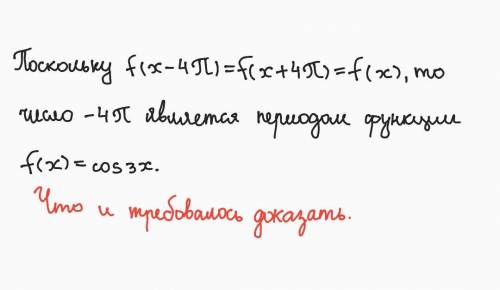 Поскольку f(x-4π)=f(x+4π)=f(x), то
число -4π является периодом функции
f(x)=cos3x.
Что и требовалось доказать.